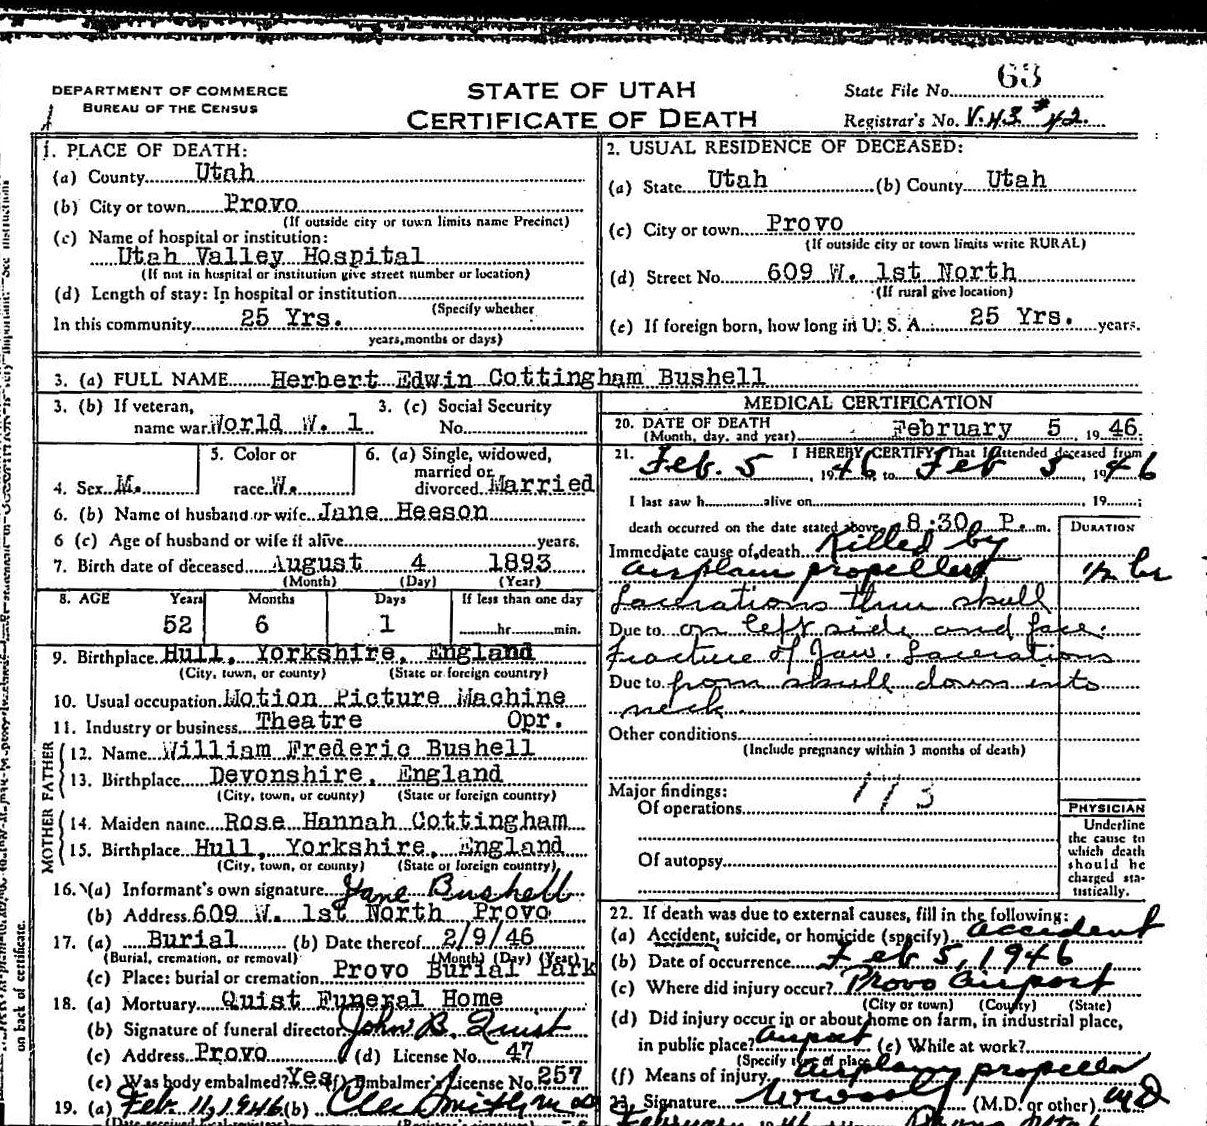 DEPARTMENT OF COMMERCE
BUREAU OF THE CENSUS
STATE OF UTAH
CERTIFICATE OF DEATH
State File No. 63
Registrar's No. V.43 #42.
1. PLACE OF DEATH:
(a) County Utah
(b) City or town Provo
(If outside city or town limits name Precinct)
(c) Name of hospital or institution:
Utah Valley Hospital
(If not in hospital or institution give street number or location)
(d) Length of stay: In hospital or institution
(Specify whether
In this community 25 Yrs.
years, months or days)
2. USUAL RESIDENCE OF DECEASED:
(a) State Utah (b) County Utah
(c) City or town Provo
(If outside city or town limits write RURAL)
(d) Street No. 609 W. 1st North
(If rural give location)
(e) If foreign born, how long in U. S. A.: 25 Yrs. years.
3. (a) FULL NAME Herbert Edwin Cottingham Bushell
3. (b) If veteran, 3. (c) Social Security
name war World W. 1 No.
5. Color or 6. (a) Single, widowed,
married or
4. Sex M. race W. divorced Married
6. (b) Name of husband or wife Jane Heeson
6 (c) Age of husband or wife if alive years.
7. Birth date of deceased August 4 1893
(Month) (Day) (Year)
8. AGE Years Months Days If less than one day
52 6 1 hr. min.
9. Birthplace Hull, Yorkshire, England
(City, town, or county) (State or foreign country)
10. Usual occupation Motion Picture Machine
11. Industry or business Theatre Opr.
FATHER
12. Name William Frederic Bushell
13. Birthplace Devonshire, England
(City, town, or county) (State or foreign country)
MOTHER
14. Maiden name Rose Hannah Cottingham
15. Birthplace Hull, Yorkshire, England
(City, town, or county) (State or foreign country)
16. (a) Informant's own signature Jane Bushell
(b) Address 609 W. 1st North Provo
17. (a) Burial (b) Date thereof 2/9/46
(Burial, cremation, or removal) (Month) (Day) (Year)
(c) Place: burial or cremation Provo Burial Park
18. (a) Mortuary Quist Funeral Home
(b) Signature of funeral director John B. Quist
(c) Address Provo (d) License No. 47
(e) Was body embalmed? Yes (f) Embalmer's License No. 257
19. (a) Feb. 11, 1946 (b)
MEDICAL CERTIFICATION
20. DATE OF DEATH
(Month, day, and year) February 5, 1946
21. I HEREBY CERTIFY That I attended deceased from
Feb. 5, 1946 to Feb 5 1946
I last saw h alive on 19 ;
death occurred on the date stated above 8:30 P. m.
DURATION
Immediate cause of death Killed by
airplain propeller 1/2 hr
Lacerations thru skull
Due to on left side and face.
Fracture of Jaw. Lacerations
Due to from skull down into
neck
Other conditions
(Include pregnancy within 3 months of death)
Major findings: 173
Of operations
Of autopsy
PHYSICIAN
Underline
the cause to
which death
should be
charged sta-
tistically.
22. If death was due to external causes, fill in the following:
(a) Accident, suicide, or homicide (specify) accident
(b) Date of occurrence Feb 5, 1946
(c) Where did injury occur? Provo Airport
(City or town) (County) (State)
(d) Did injury occur in or about home on farm, in industrial place,
in public place? Airport (e) While at work?
(Specify type of place)
(f) Means of injury Airplane propeller
23. Signature (M.D. or other) MD
on back of certificate.